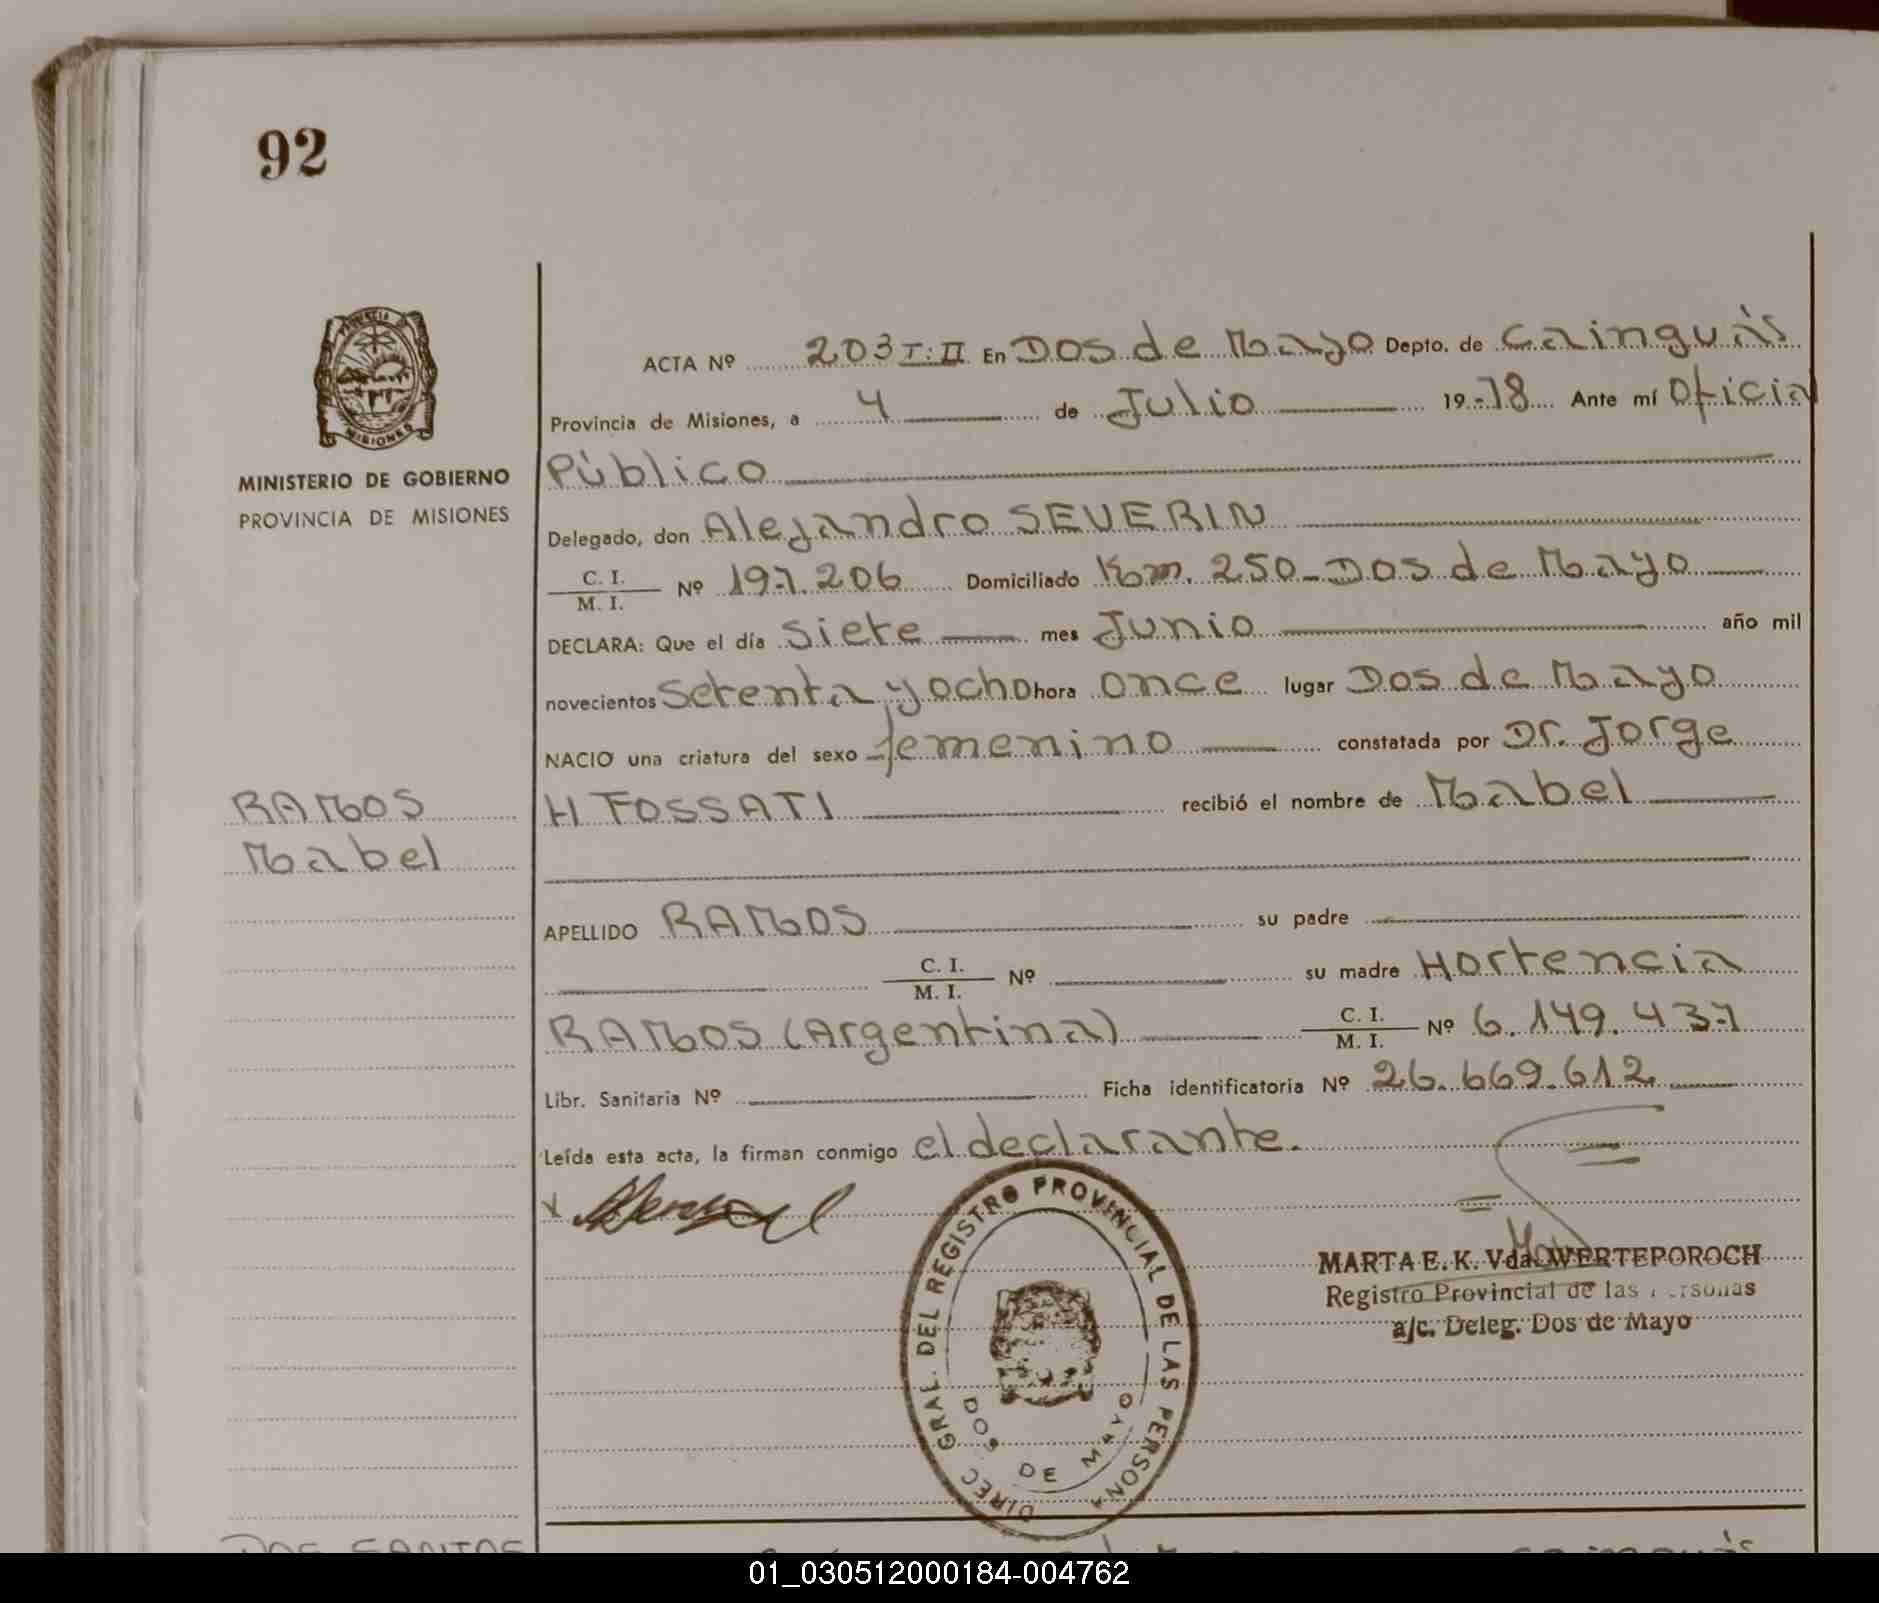 92
PROVINCIA
MISIONES
MINISTERIO DE GOBIERNO
PROVINCIA DE MISIONES
RAMOS
Mabel
ACTA Nº 203 I:II En Dos de Mayo Depto. de Cainguás
Provincia de Misiones, a 4 de Julio 19-78 Ante mí Oficial
Público
Delegado, don Alejandro SEVERIN
C. I.
M. I. Nº 197.206 Domiciliado Km. 250-Dos de Mayo
DECLARA: Que el día siete mes Junio año mil
novecientos setenta y ocho hora once lugar Dos de Mayo
NACIO una criatura del sexo femenino constatada por Dr. Jorge
H FOSSATI recibió el nombre de Mabel
APELLIDO RAMOS su padre
C. I.
M. I. Nº su madre Hortencia
RAMOS (Argentina) C. I.
M. I. Nº 6.149.437
Libr. Sanitaria Nº Ficha identificatoria Nº 26.669.612
Leída esta acta, la firman conmigo el declarante.
x
DIREC GRAL. DEL REGISTRO PROVINCIAL DE LAS PERSONA
DOS DE MAYO
MARTA E. K. Vda. WERTEPOROCH
Registro Provincial de las Personas
a/c. Deleg. Dos de Mayo
DOS SANTOS
01_030512000184-004762